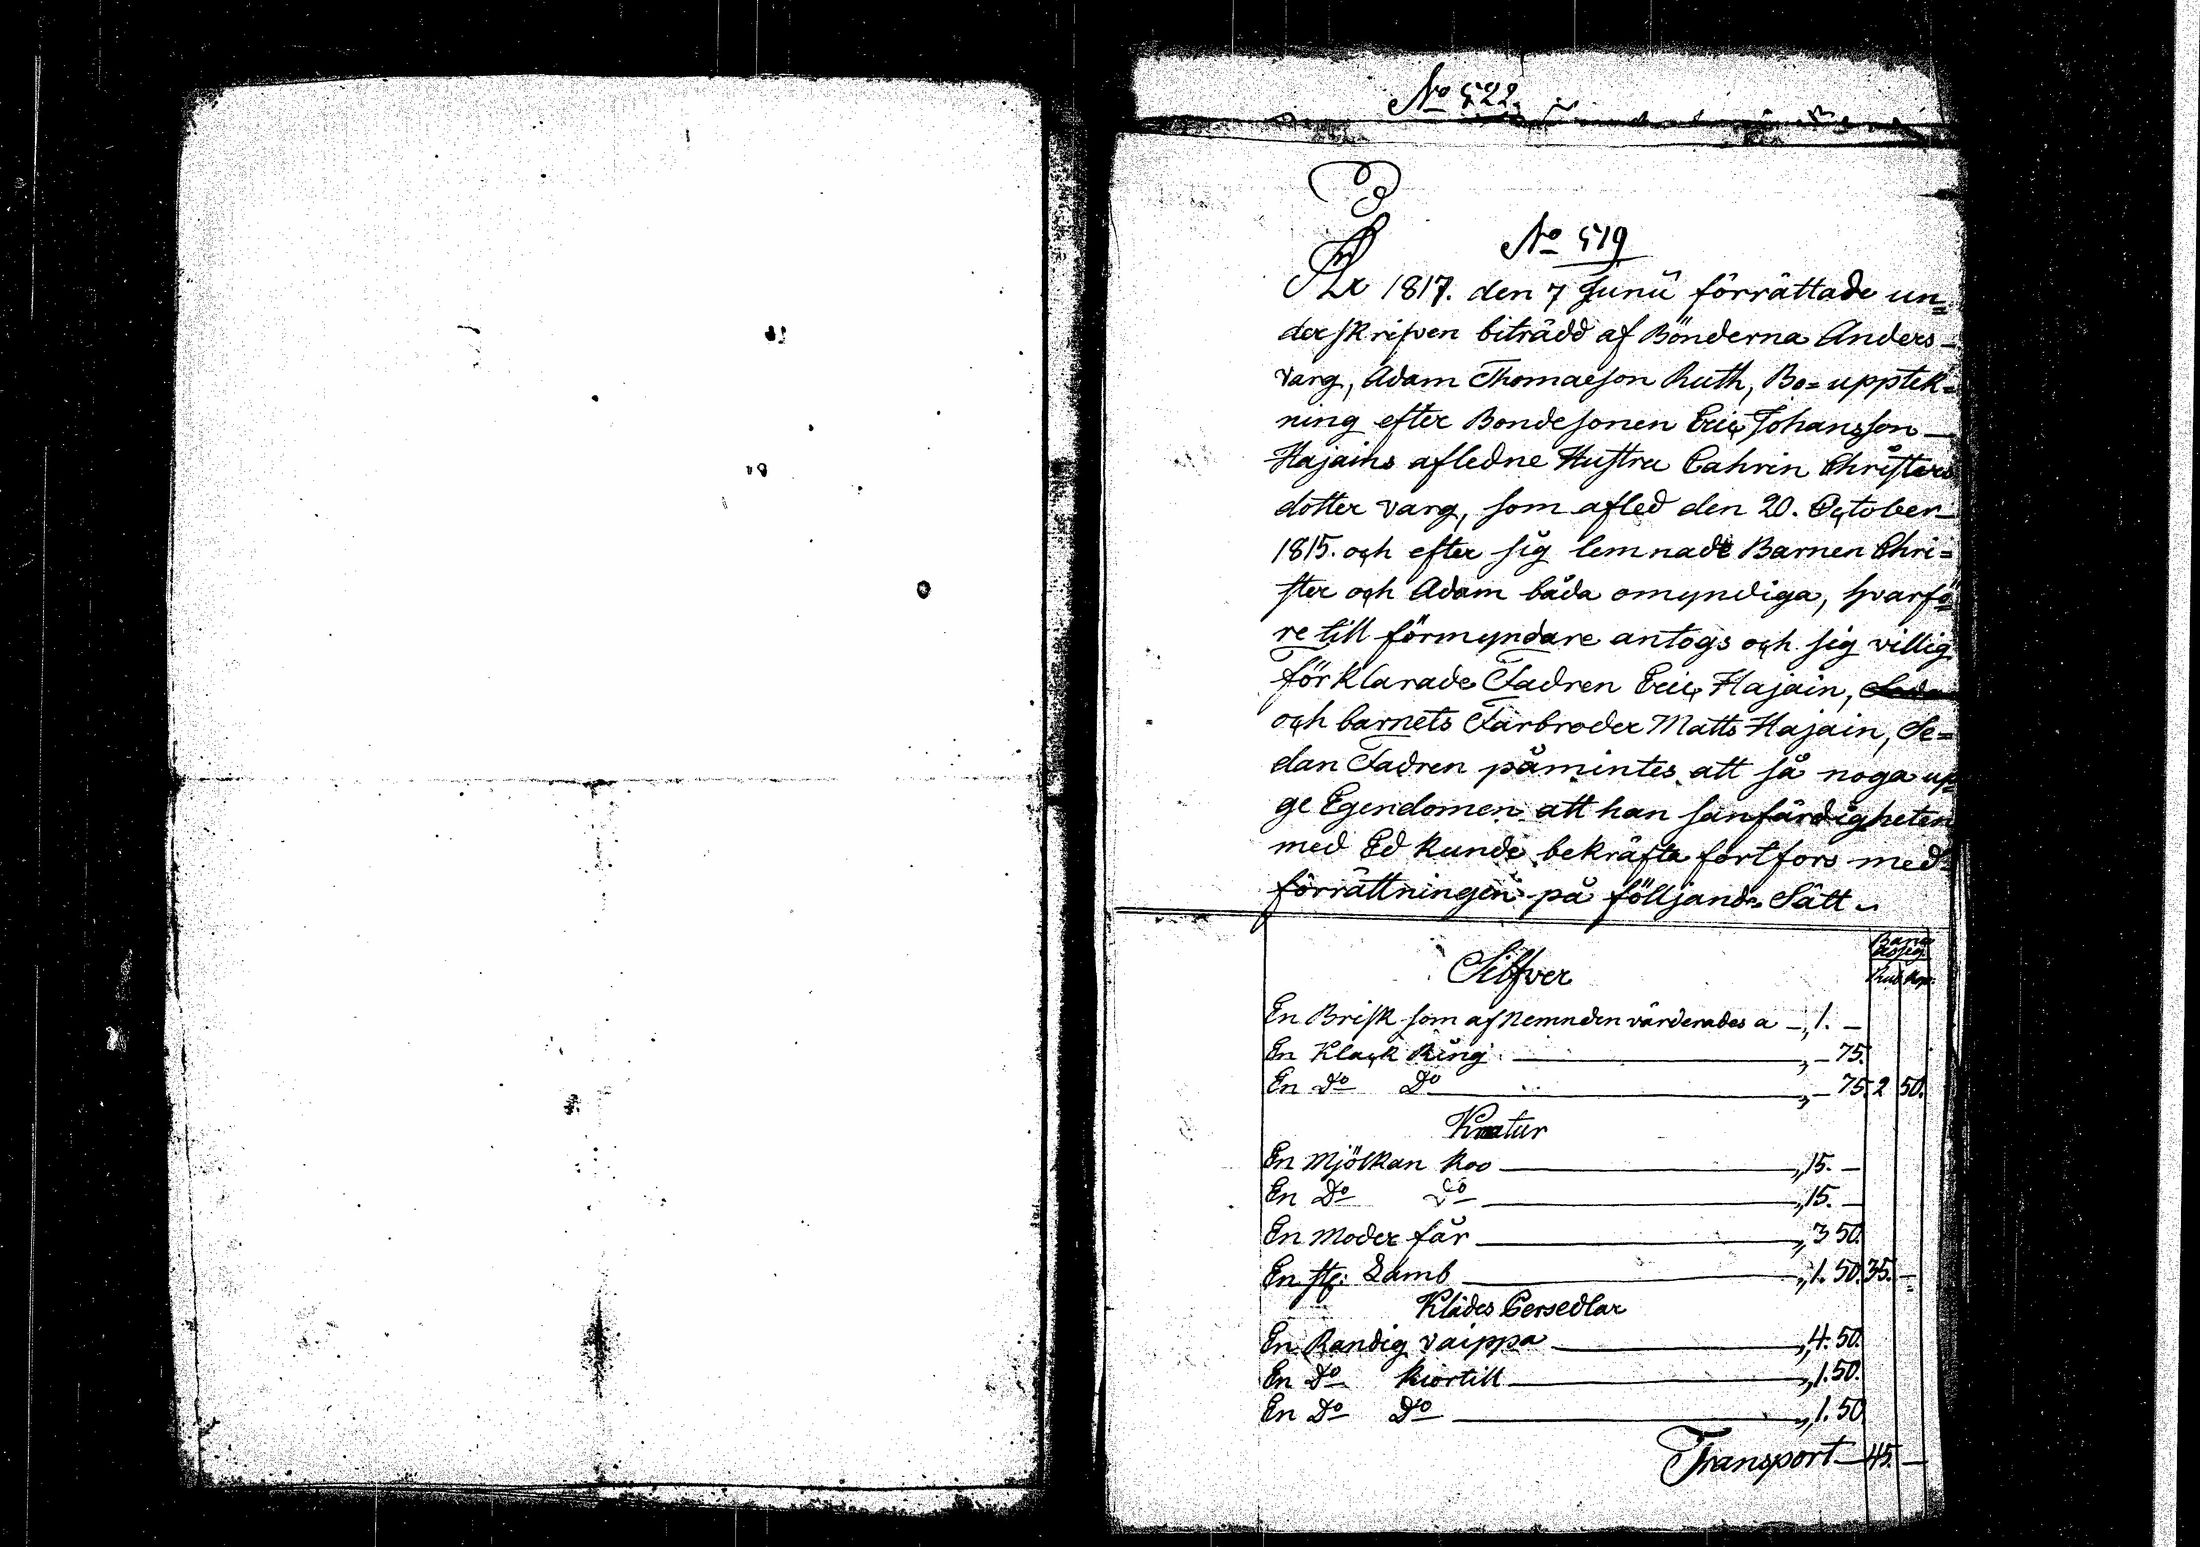 No 522.
No 519
År 1817. den 7 Junii förrättade un=
derskrifven biträdd af Bönderna Anders
varg, Adam Thomaeson Ruth, Bo=upptek=
ning efter Bondesonen Eric Johansson
Hajains afledne Hustru Cahrin Christers
dotter varg, som afled den 20. October
1815. och efter sig lemnade Barnen Chri=
ster och Adam båda omyndiga, hvarfö
re till förmyndare antogs och sig villig
förklarade Fadren Eric Hajain,
och barnets Farbroder Matts Hajain, Se=
dan Fadren påmintes att så noga up
ge Egendomen att han sanfärdigheten
med Ed kunde bekräfta fortfors med
förrättningen på följande Sätt
Banco
Assig.
Rub. Kop.
Silfver
En Brisk som af Nemnden värderades a — „ 1. —
En Klack Ring — „ — 75.
En Do Do — „ — 75. 2 50.
Kreatur
En Mjölkan Koo — „ 15. —
En Do Do — „ 15. —
En Moder får — „ 3 50.
En st: Lamb — „ 1. 50. 35. —
Klädes Persedlar
En Randig vaippa — „ 4. 50.
En Do kiortill — „ 1. 50.
En Do Do — „ 1. 50
Transport — 45. —